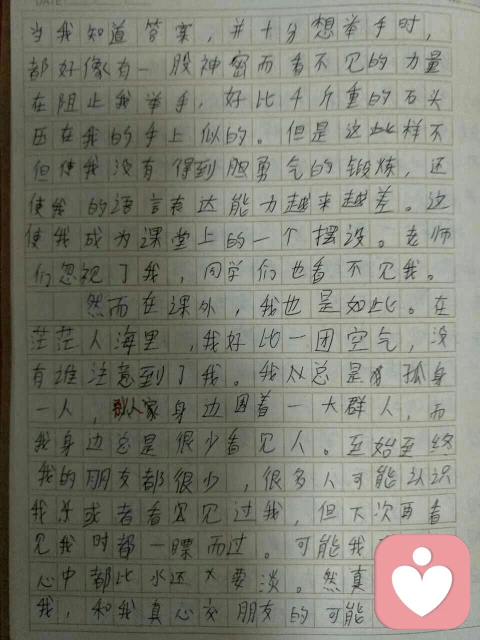 当我知道答案，并十分想举手时，
都好像有一股神密而看不见的力量
在阻止我举手，好比千斤重的石头
压在我的手上似的。但是这此样不
但使我没有得到胆勇气的锻炼，还
使我的语言表达能力越来越差。这
使我成为课堂上的一个摆设。老师
们忽视了我，同学们也看不见我。
然而在课外，我也是如此。在
茫茫人海里，我好比一团空气，没
有谁注意到了我。我总是孤身
一人，别人家身边围着一大群人，而
我身边总是很少看见人。至始至终
我的朋友都很少，很多人可能认识
我或者看见过我，但下次再看
见我时都一瞟而过。可能我
心中都比水还要淡。然真
我，和我真心交朋友的可能